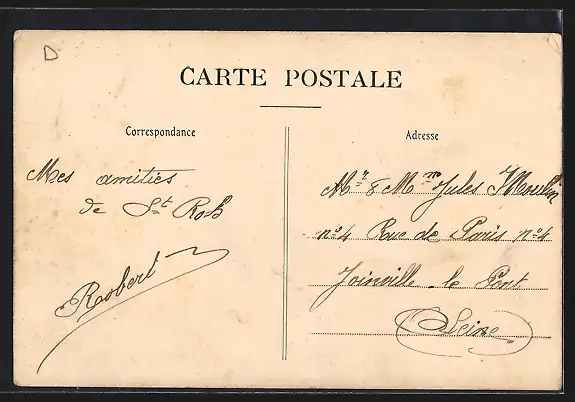 D
CARTE POSTALE
Correspondance
Mes amitiés
de St Rob
Robert
Adresse
Mr & Mme Jules Moulin
n° 4 Rue de Paris n° 4
Joinville-le Pont
Seine